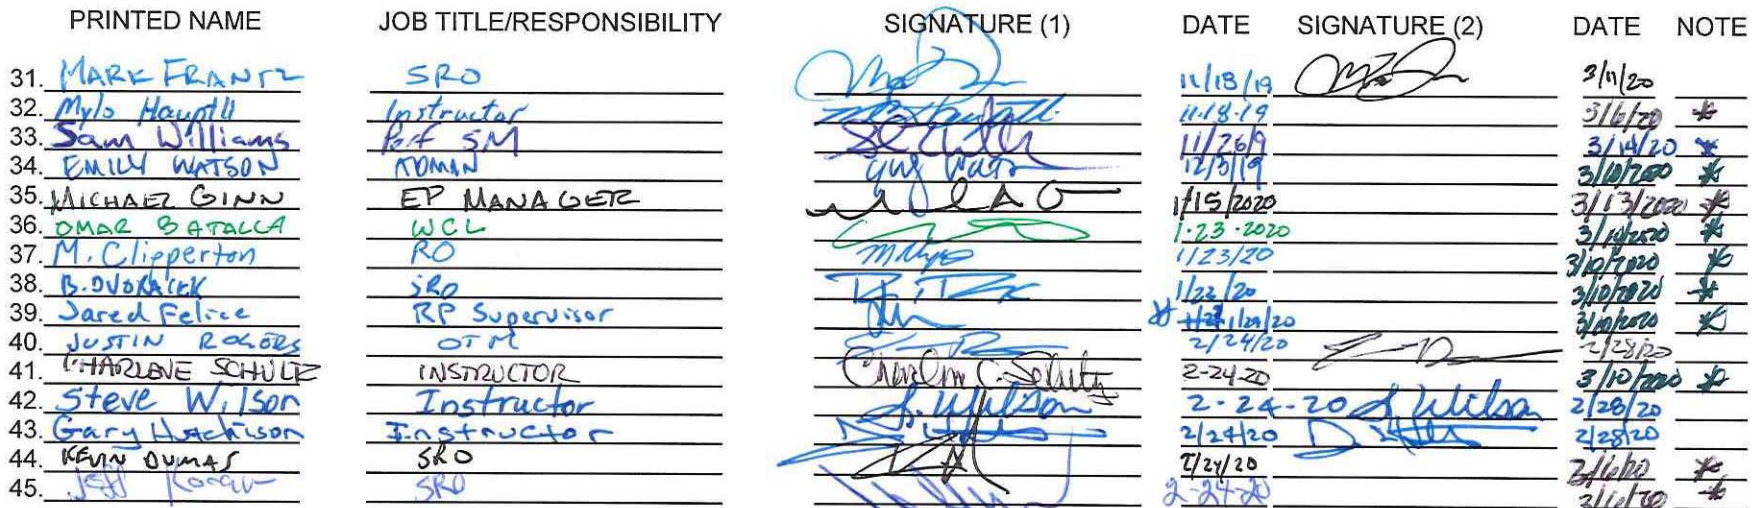 PRINTED NAME JOB TITLE/RESPONSIBILITY SIGNATURE (1) DATE SIGNATURE (2) DATE NOTE
31. MARK FRANTZ SRO 11/18/19 3/11/20
32. Mylo Instructor 11.18.19 3/6/20 *
33. Sam Williams SM 11/26/9 3/14/20 *
34. EMILY WATSON ADMIN 12/3/19 3/10/2020 *
35. MICHAEL GINN EP MANAGER 1/15/2020 3/13/2020 *
36. OMAR BATALLA WCL 1.23.2020 3/10/2020 *
37. M. Clipperton RO 1/23/20 3/10/2020 *
38. B. DVORACEK SRO 1/22/20 3/10/2020 *
39. Jared Felice RP Supervisor * 1/29/20 3/10/2020 *
40. JUSTIN ROGERS OTM 2/24/20 2/28/20
41. CHARLENE SCHULTZ INSTRUCTOR Charlene C. Schultz 2-24-20 3/10/2020 *
42. Steve Wilson Instructor S. Wilson 2-24-20 S. Wilson 2/28/20
43. Gary Hutchison Instructor 2/24/20 2/28/20
44. KEVIN DUMAS SRO 2/24/20 3/6/20 *
45. Jeff SRO 2-24-20 3/6/20 *